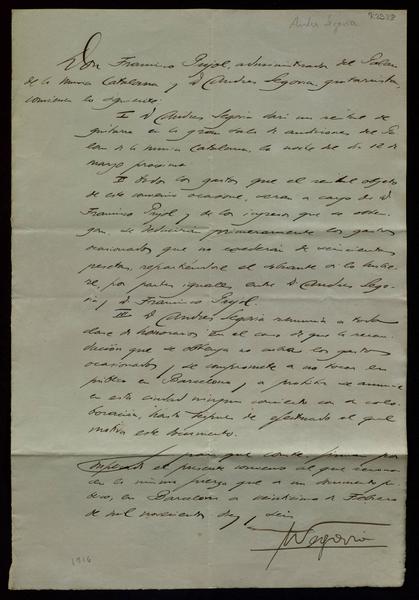 Andres Segovia
Don Francisco Pujol, administrador del Palau
de la Musica Catalana y D. Andres Segovia, guitarrista,
convienen lo siguiente:
I D. Andres Segovia dará un recital de
guitarra en la gran sala de audiciones del Pa-
lau de la Musica Catalana, la noche del dia 12 de
marzo proximo.
II Todos los gastos que el recital objeto
de este convenio ocasione, seran a cargo de D.
Francisco Pujol y de los ingresos que se obten-
gan, se deduciran primeramente los gastos
ocasionados que no excederan de seiscientas
pesetas, repartiendose el sobrante si lo hubie-
re, por partes iguales entre D. Andres Sego-
via y D. Francisco Pujol.
III D. Andres Segovia renuncia a toda
clase de honorarios en el caso de que la recau-
dación que se obtenga no cubra los gastos
ocasionados, y se compromete a no tocar en
publico en Barcelona, y a prohibir se anuncie
en esta ciudad ningun concierto con su cola-
boración, hasta despues de efectuado el que
motiva este documento.
Y para que conste firman por
duplicado el presente convenio al que reconocen
la misma fuerza que a un documento pu-
blico, en Barcelona a de Febrero
de mil novecientos diez y seis
A Segovia
1916